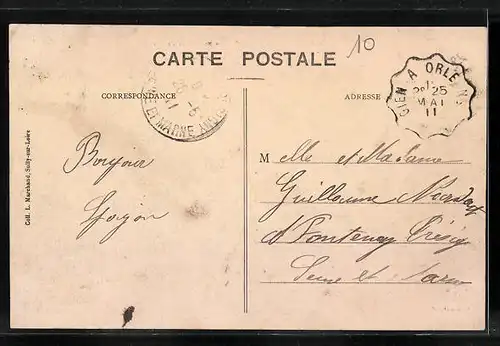 CARTE POSTALE
10
CORRESPONDANCE
ADRESSE
GIEN A ORLEANS
25
MAI
11
ET MARNE
Bonjour
Coll. L. Marchand, Sully-sur-Loire
M elle et Madame
Guillaume
à Fontenay Trésigny
Seine et Marne